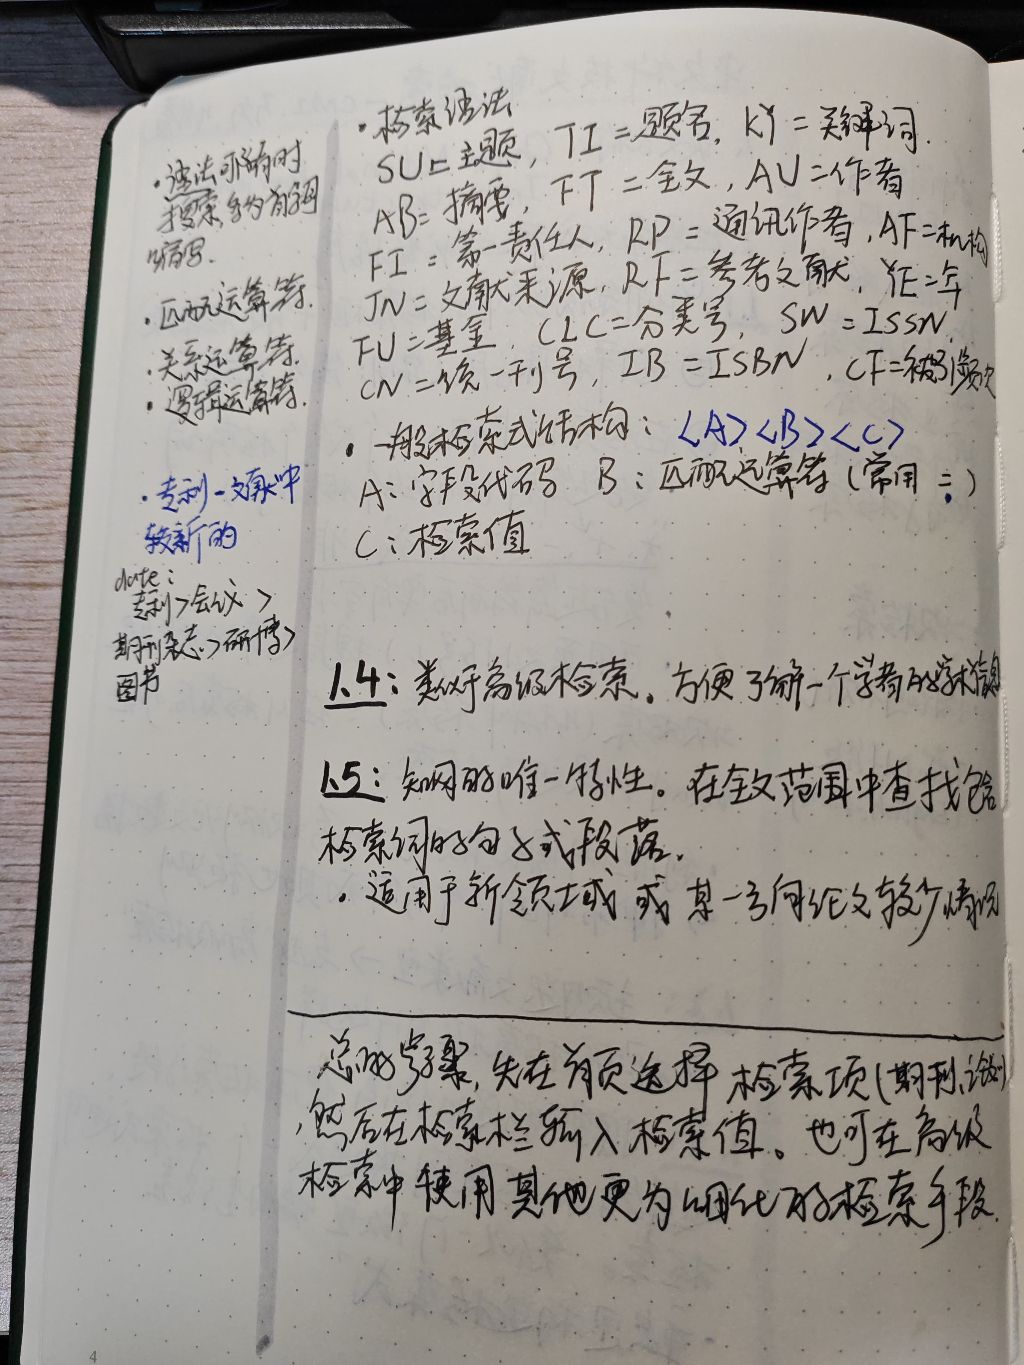 ·语法可随时
搜索,多为首字母
缩写.
·匹配运算符.
·关系运算符.
·逻辑运算符.
·专利-文献中
较新的
date:
专利>会议>
期刊杂志>研博>
图书
·检索语法
SU=主题, TI=题名, KY=关键词.
AB=摘要, FT=全文, AU=作者
FI=第一责任人, RP=通讯作者, AF=机构
JN=文献来源, RF=参考文献, YE=年
FU=基金, CLC=分类号, SN=ISSN,
CN=统一刊号, IB=ISBN, CF=被引频次
·一般检索式结构:<A><B><C>
A:字段代码 B:匹配运算符(常用=)
C:检索值
1.4:类似于高级检索。方便了解一个学者的学术信息
1.5:知网的唯一特性。在全文范围中查找包含
检索词的句子或段落.
·适用于新领域或 或某一方向论文较少情况
总的步骤,先在首页选择检索项(期刊、
,然后在检索栏输入检索值。也可在高级
检索中使用其他更为细化的检索手段.
4